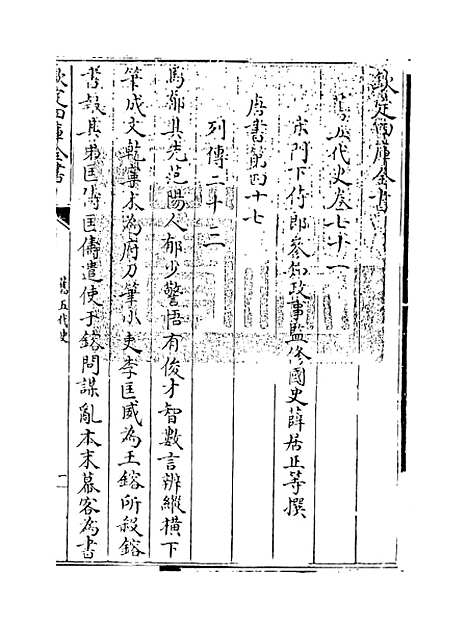 欽定四庫全書
舊五代史卷七十一
宋門下侍郎參知政事監修國史薛居正等撰
唐書第四十七
列傳二十三
馬郁其先范陽人郁少警悟有俊才智數言辨縱橫下
筆成文乾寧末為府刀筆小吏李匡威為王鎔所殺鎔
書報其弟匡儔匡儔遣使于鎔問謀亂本末幕客為書
欽定四庫全書
舊五代史
一